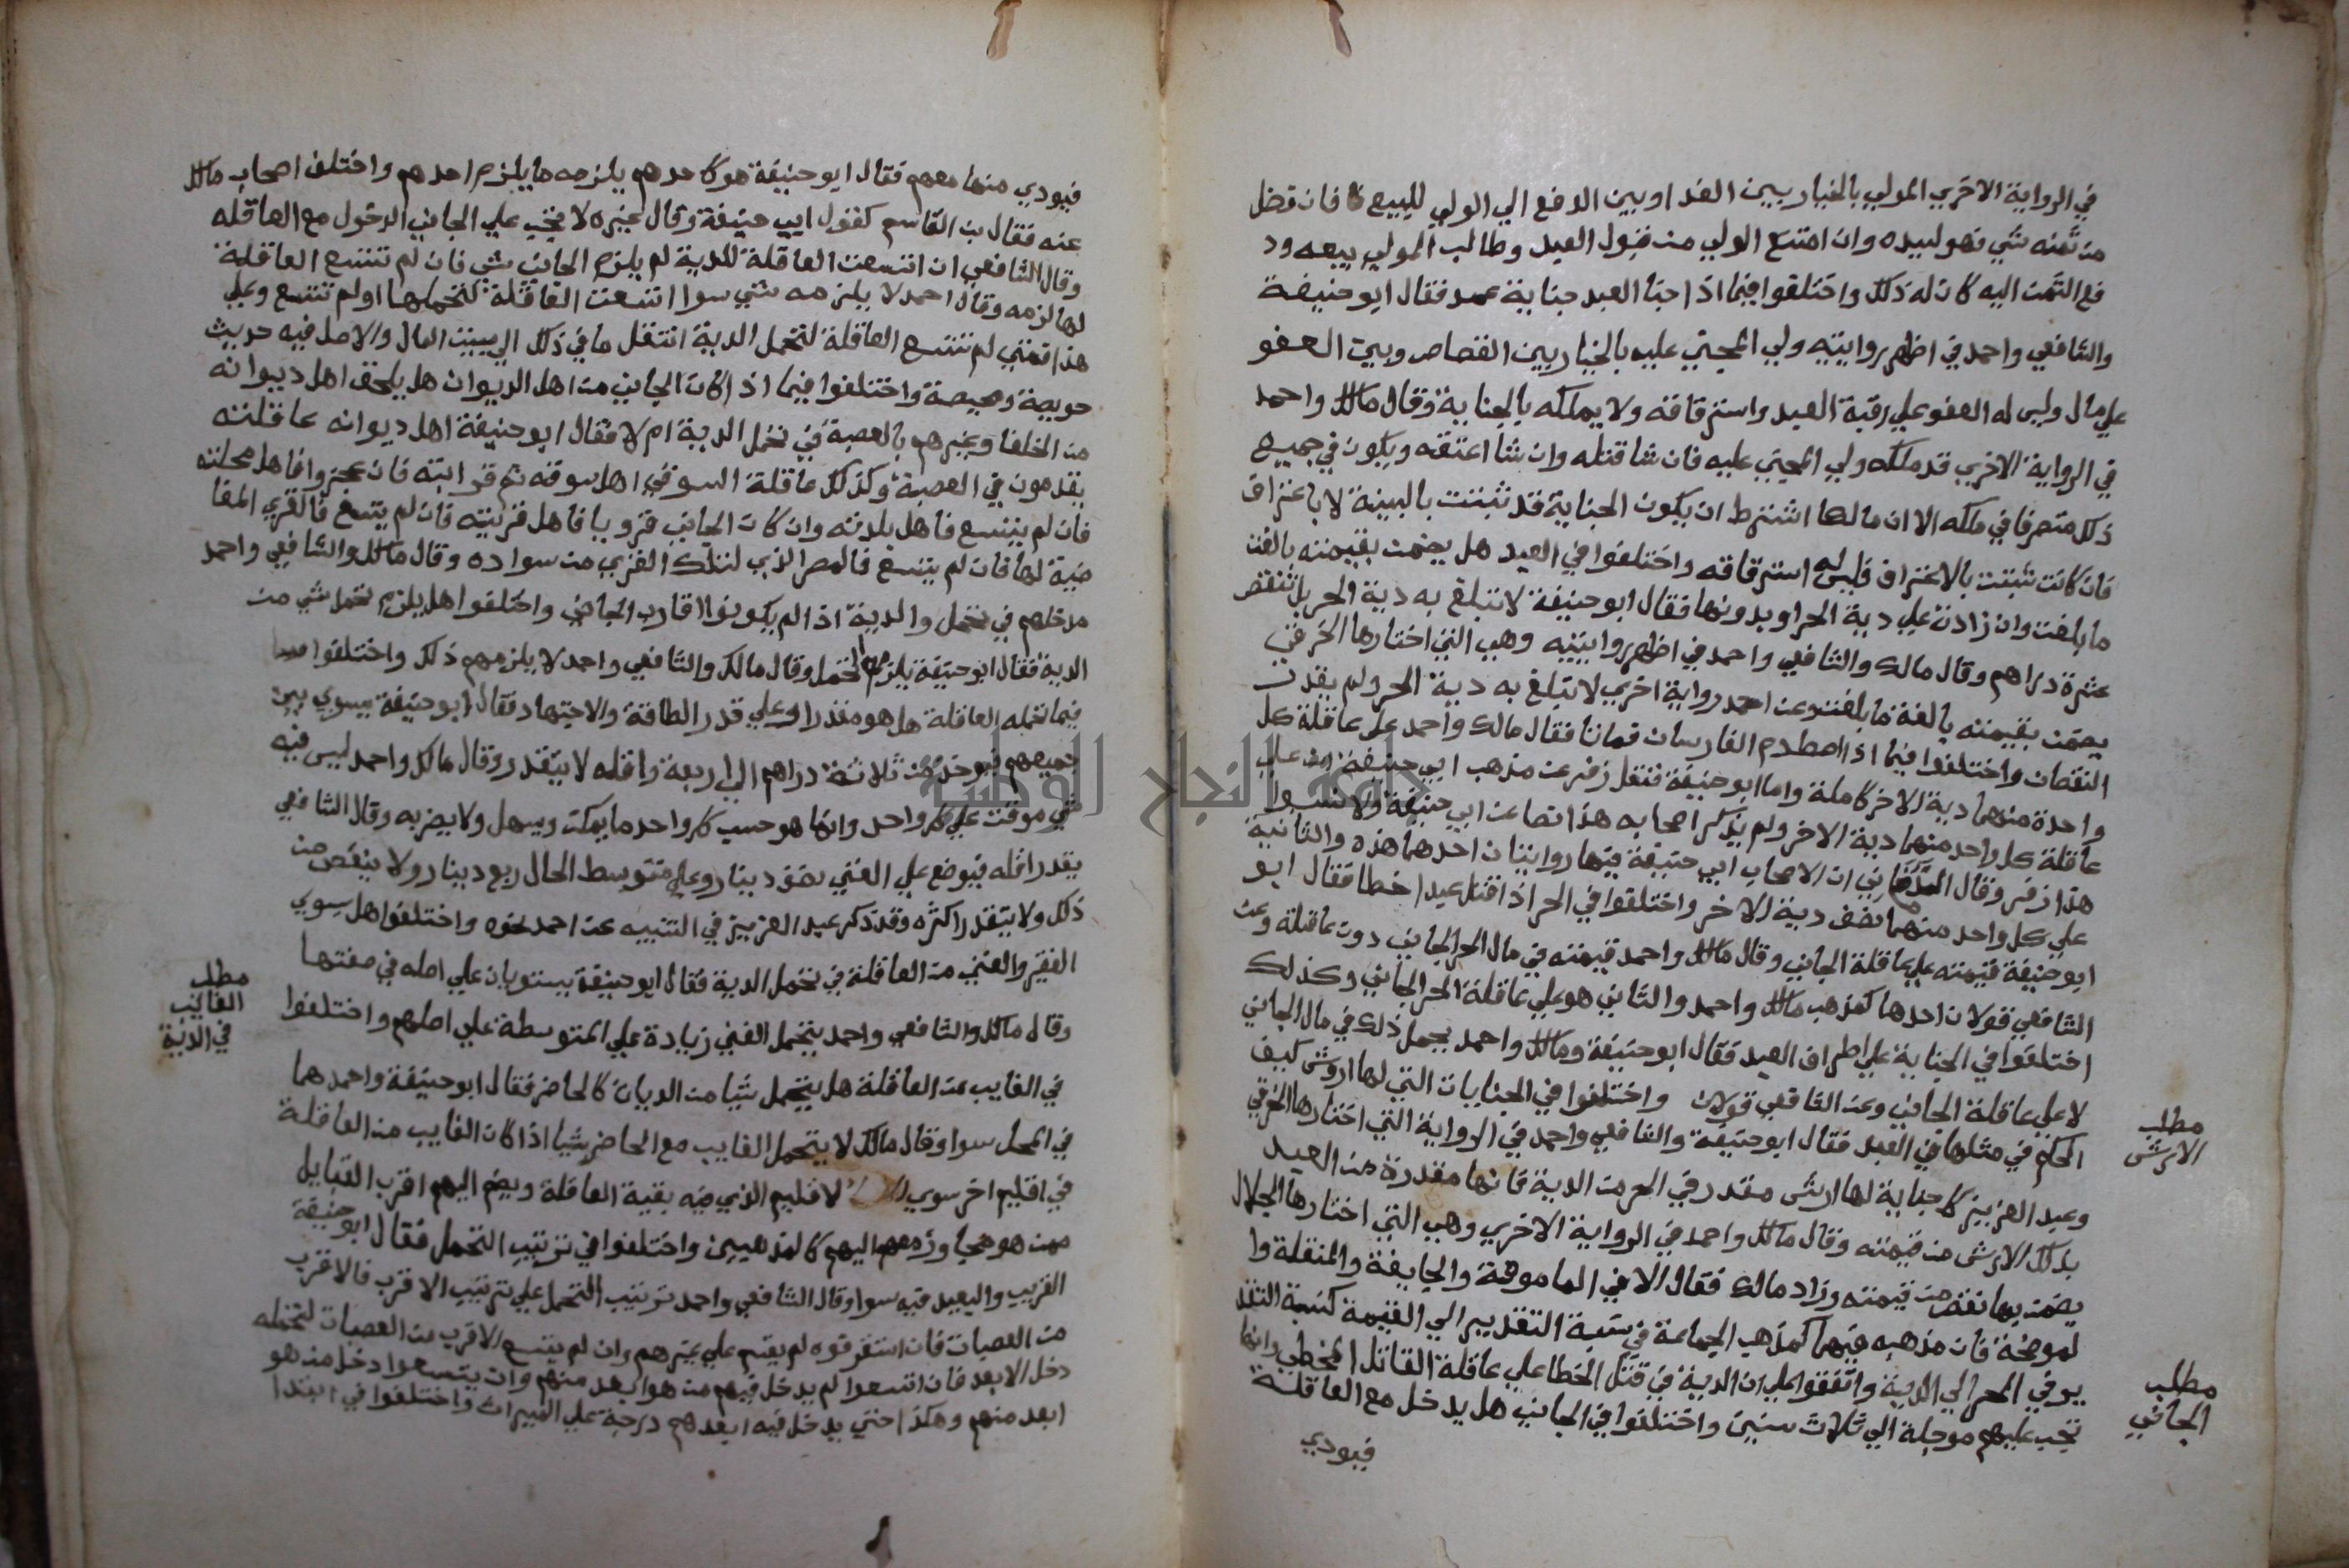 في الرواية الاخري المولي بالخيار بين الفدا وبين الدفع الي الولي للبيع فان فضل
من ثمنه شي فهو لسيده وان امتنع الولي من قبول العبد وطالب المولي ببيعه ود
فع الثمن اليه كان له ذلك واختلفوا فيما اذا جنا العبد جناية عمد فقال ابو حنيفة
والشافعي واحمد في اظهر روايتيه ولي المجني عليه بالخيار بين القصاص وبين العفو
علي مال وليس له العفو علي رقبة العبد واسترقاقه ولا يملكه بالجناية وقال مالك واحمد
في الرواية الاخري قد ملكه ولي المجني عليه فان شا قتله وان شا اعتقه ويكون في جميع
ذلك متصرفا في ملكه الا ان مالكا اشترط ان يكون الجناية قد ثبتت بالبينة لا باعتراف
فان كانت ثبتت بالاعتراف فليس له استرقاقه واختلفوا في العبد هل يضمن بقيمته بالغت
ما بلغت وان زادت علي دية الحر او بدونها فقال ابو حنيفة لا تبلغ به دية الحر بل تنقص
عشرة دراهم وقال مالك والشافعي واحمد في اظهر روايتيه وهي التي اختارها الخرقي
يضمن بقيمته بالغة ما بلغت وعن احمد رواية اخري لا تبلغ به دية الحر ولم يقدر
النقصان واختلفوا فيما اذا اصطدم الفارسان فماتا فقال مالك واحمد علي عاقلة كل
واحدة منهما دية الاخر كاملة واما ابو حنيفة فنقل زفر عن مذهب ابي حنيفة ان علي
عاقلة كل واحد منهما دية الاخر ولم يذكر اصحابه هذا نصا عن ابي حنيفة ولا نسبوا
هذا زفر وقال الدامغاني ان لاصحاب ابي حنيفة فيها روايتان احدهما هذه والثانية
علي كل واحد منهما نصف دية الاخر واختلفوا في الحر اذا قتل عبدا خطا فقال ابو
ابو حنيفة قيمته علي عاقلة الجاني وقال مالك واحمد قيمته في مال الحر الجاني دون عاقلته وعن
الشافعي قولان احدها كمذهب مالك واحمد والثاني هو علي عاقلة الحر الجاني وكذلك
اختلفوا في الجناية علي اطراف العبد فقال ابو حنيفة ومالك واحمد يجعل ذلك في مال الجاني
لا علي عاقلة الجاني وعن الشافعي قولان واختلفوا في الجنايات التي لها اروش كيف
الحكم في مثلها في العبد فقال ابو حنيفة والشافعي واحمد في الرواية التي اختارها الخرقي
وعبد العزيز كل جناية لها ارش مقدر في الحر من الدية فانها مقدرة من العبد
بذلك الارش من قيمته وقال مالك واحمد في الرواية الاخري وهي التي اختارها الخلال
يضمن بها نقص من قيمته وزاد مالك فقال الا في المامومة والجايفة والمنقلة وا
لموضحة فان مذهبه فيها كمذهب الجماعة في نسبة التقدير الي القيمة كنسبة التقد
ير في الحر الي الدية واتفقوا علي ان الدية في قتل الخطا علي عاقلة القاتل المخطي وانها
تجب عليهم موجلة الي ثلاث سنين واختلفوا في الجاني هل يدخل مع العاقلة
فيودي
مطلب
الارش
مطلب
الجاني
فيودي منها معهم فقال ابو حنيفة هو كاحدهم يلزمه ما يلزم احدهم واختلف اصحاب مالك
عنه فقال بن القاسم كقول ابي حنيفة وقال غيره لا يجب علي الجاني الدخول مع العاقله
وقال الشافعي ان اتسعت العاقلة للدية لم يلزم الجاني شي فان لم تتسع العاقلة
لها لزمه وقال احمد لا يلزمه شي سوا اتسعت العاقلة لتحملها او لم تتسع وعلي
هذا فمتي لم تتسع العاقلة لتحمل الدية انتقل ما في ذلك الي بيت المال والاصل فيه حديث
حويصة ومحيصة واختلفوا فيما اذا كان الجاني من اهل الديوان هل يلحق اهل ديوانه
من الخلفا وغيرهم بالعصبة في تحمل الدية ام لا فقال ابو حنيفة اهل ديوانه عاقلته
يقدمون في العصبة وكذلك عاقلة السوقي اهل سوقه ثم قرابته فان عجزوا فاهل محلته
فان لم يتسع فاهل بلدته وان كان الجاني قرويا فاهل قريته فان لم يتسع فالقري المضا
هية لها فان لم يتسع فالمصر الذي لتلك القري من سواده وقال مالك والشافعي واحمد
مدخلهم في تحمل والدية اذا لم يكونوا اقارب الجاني واختلفوا هل يلزم تحمل شي من
الدية فقال ابو حنيفة يلزمهم التحمل وقال مالك والشافعي واحمد لا يلزمهم ذلك واختلفوا
فيما تحمله العاقلة هل هو مقدر او علي قدر الطاقة والاجتهاد فقال ابو حنيفة يسوي بين
جميعهم فيوخذ من ثلاثة دراهم الي اربعة واقله لا يتقدر وقال مالك واحمد ليس فيه
شي موقت علي كل واحد وانما هو حسب كل واحد ما يمكن ويسهل ولا يضر به وقال الشافعي
يقدر اقله فيوضع علي الغني نصف دينار وعلي متوسط الحال ربع دينار ولا ينقص من
ذلك ولا يتقدر اكثره وقد ذكر عبد العزيز في التنبيه عن احمد نحوه واختلفوا هل يسوي
الفقير والغني من العاقلة في تحمل الدية فقال ابو حنيفة يستويان علي اصله في صفتها
وقال مالك والشافعي واحمد يتحمل الغني زيادة علي المتوسطة علي اصلهم واختلفوا
في الغايب عن العاقلة هل يتحمل شيا من الديات كالحاضر فقال ابو حنيفة واحمد هما
في المحل سوا وقال مالك لا يتحمل الغايب مع الحاضر شيا اذا كان الغايب من العاقلة
في اقليم اخر سوي الاقليم الذي فيه بقية العاقلة ويضم اليهم اقرب القبايل
ممن هو اليهم كالمذهبين واختلفوا في ترتيب التحمل فقال ابو حنيفة
القريب والبعيد فيه سوا وقال الشافعي واحمد ترتيب التحمل علي ترتيب الاقرب فالاقرب
من العصبات فان استغرقوه لم يقسم علي غيرهم وان لم يتسع الاقرب من العصبات لتحمله
دخل الابعد فان اتسعوا لم يدخل فيهم من هو ابعد منهم وان يتسعوا دخل من هو
ابعد منهم وهكذا حتي يدخل فيه ابعدهم درجة علي الميراث واختلفوا في ابتدا
مطلب
الغايب
في الدية
جامعة النجاح الوطنية